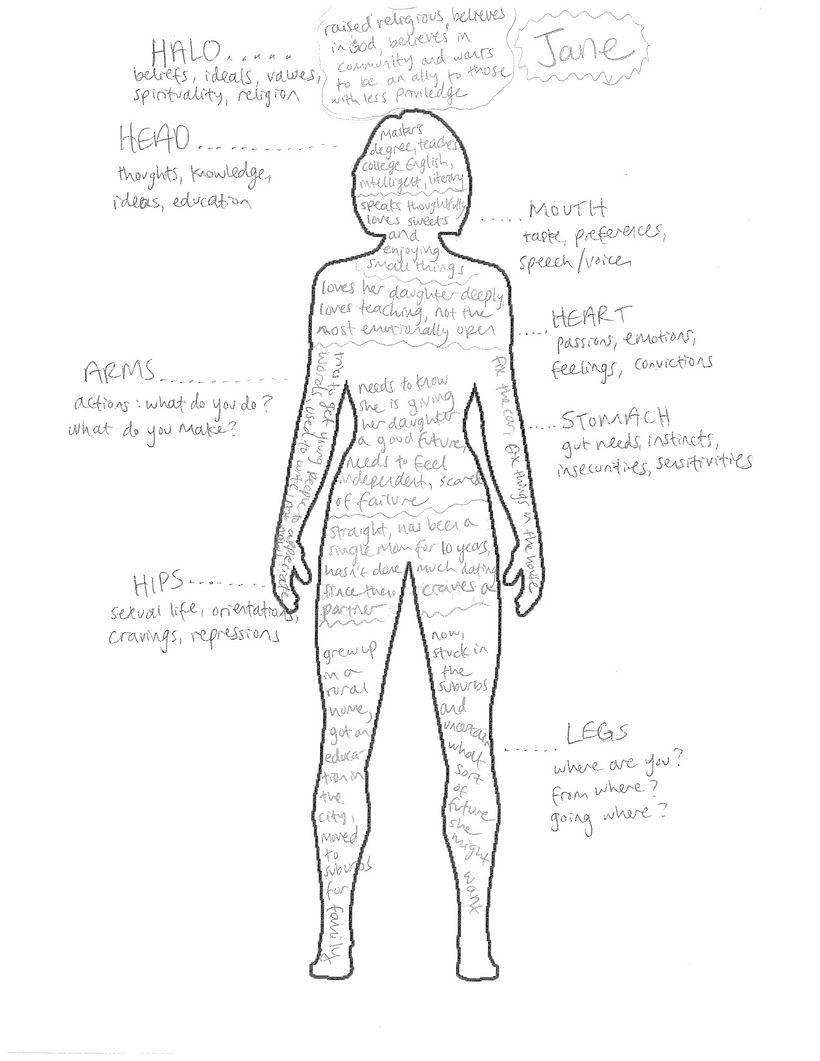 raised religious, believes
in God, believes in
community and wants
to be an ally to those
with less priviledge
Jane
HALO......
beliefs, ideals, values,
spirituality, religion
HEAD...........
thoughts, knowledge,
ideas, education
Masters
degree, teaches
college English,
intelligent, literary
speaks thoughtfully
loves sweets
and
enjoying
small things
.....MOUTH
taste, preferences,
speech/voice
loves her daughter deeply
loves teaching, not the
most emotionally open
.....HEART
passions, emotions,
feelings, convictions
ARMS............
actions: what do you do?
what do you make?
try to get young people to appreciate
words, used to write, not now
fix the car, fix things in the house
needs to know
she is giving
her daughter
a good future,
needs to feel
independent, scared
of failure
.....STOMACH
gut needs, instincts,
insecurities, sensitivities
straight, has been a
single mom for 10 years,
hasn't done much dating
since then, craves a
partner
HIPS........
sexual life, orientation,
cravings, repressions
grew up
in a
rural
home,
got an
educa-
tion in
the
city,
moved
to
suburbs
for family
now,
stuck in
the
suburbs
and
uncertain
what
sort
of
future
she
might
want
.......LEGS
where are you?
from where?
going where?